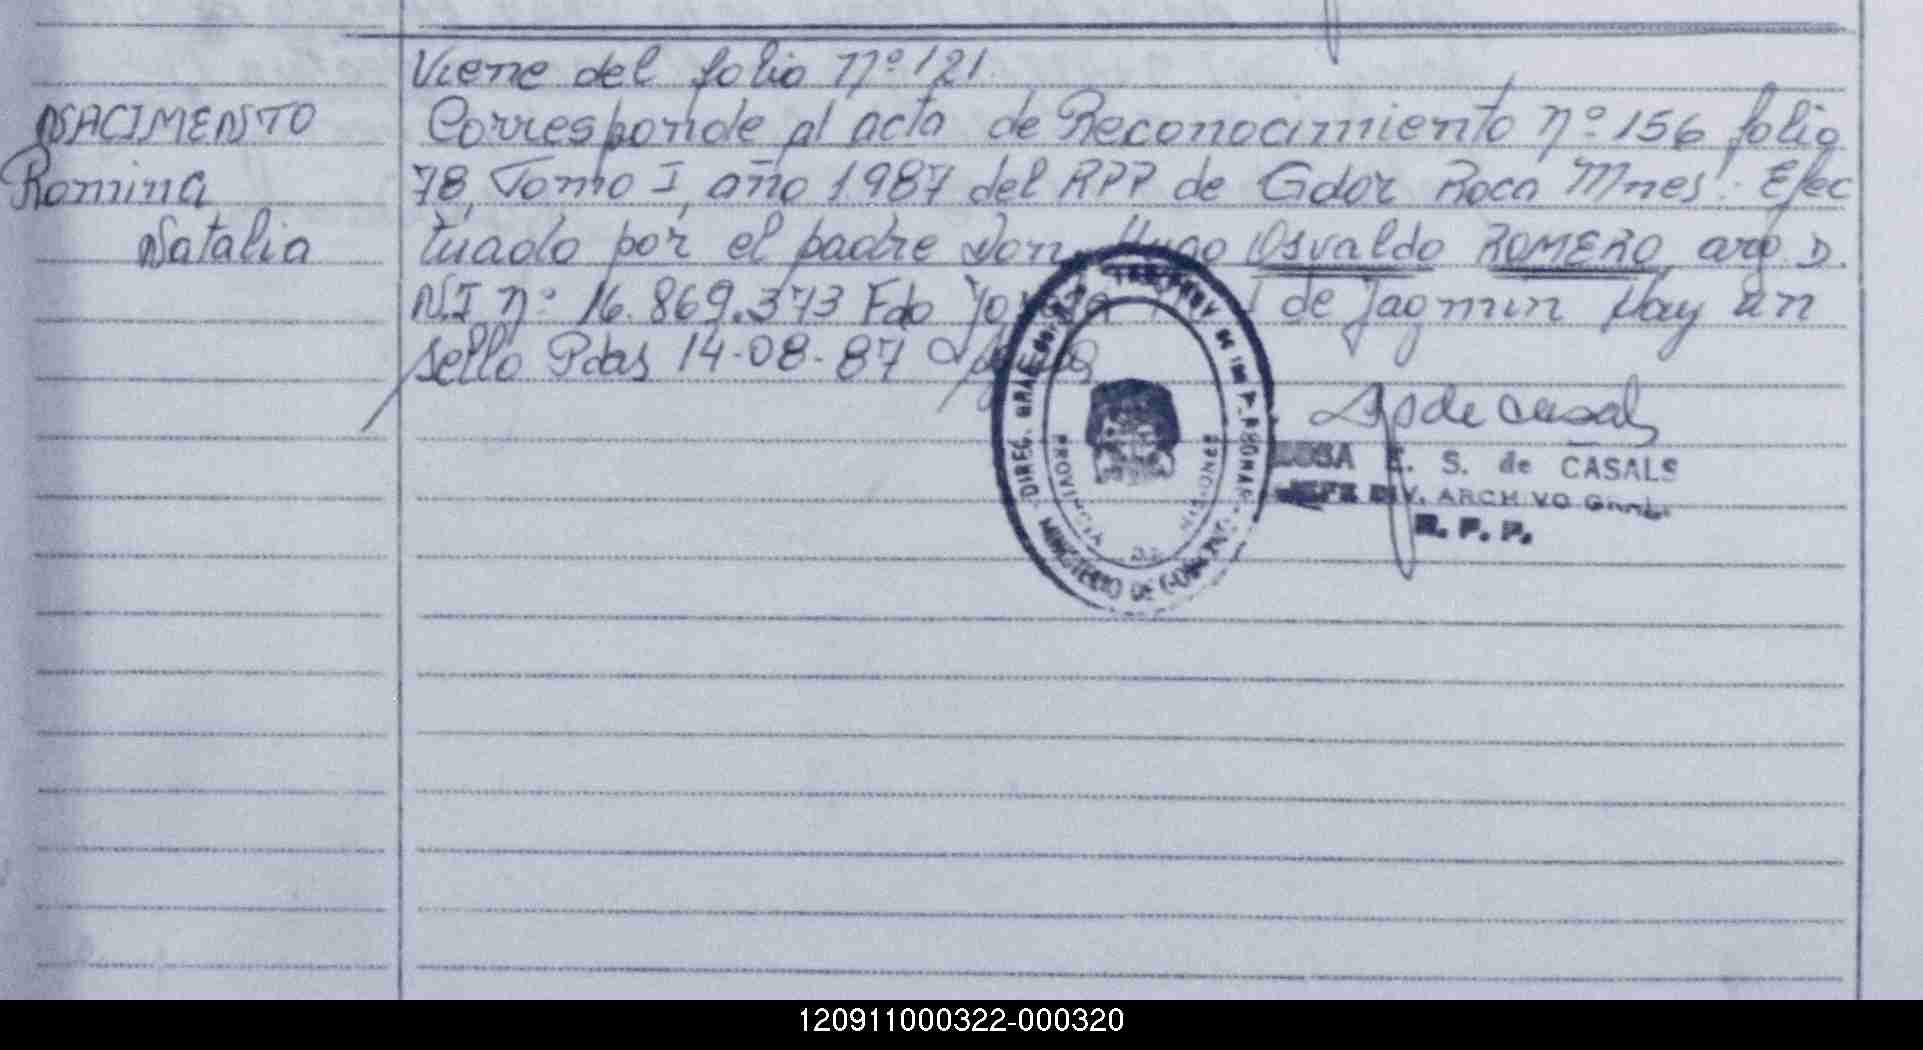 Viene del folio Nº 121.
NACIMIENTO
Corresponde al acta de Reconocimiento Nº 156 folio
Romina
78, Tomo I, año 1987 del RPP de Gdor Roca Mnes. Efec
Natalia
tuado por el padre Don Hugo Osvaldo ROMERO arg D.
N.I Nº 16.869.373 Fdo de Jagmin Hay un
sello Pdas 14-08-87
S de Casals
ROSA E. S. de CASALS
JEFE DIV. ARCHIVO Gral.
R. P. P.
DIREC. GRAL.
PROVINCIA DE MISIONES
MINISTERIO DE GOBIERNO
120911000322-000320